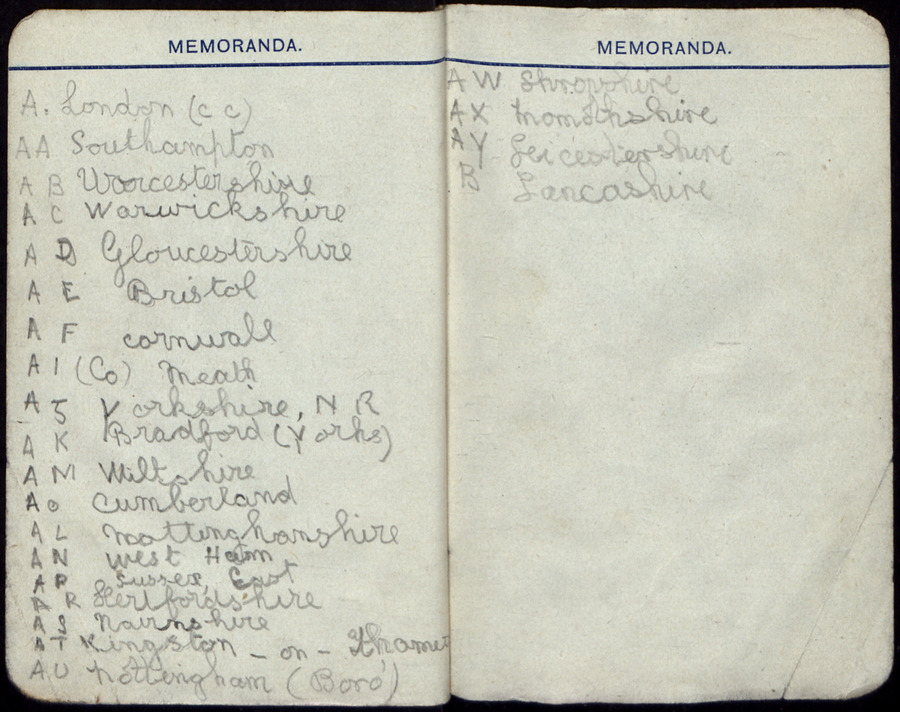 MEMORANDA.
A. London (c c)
AA Southampton
A B Worcestershire
A C Warwickshire
A D Gloucestershire
A E Bristol
A F cornwall
A I (Co) Meath
A J Yorkshire, N R
A K Bradford (Yorks)
A M Wiltshire
A o Cumberland
A L Nottinghamshire
A N West Ham
A P Sussex, East
A R Hertfordshire
A S Nairnshire
A T Kingston - on - Thames
A U Nottingham (Boro)
MEMORANDA.
A W Shropshire
A X Monmothshire
A Y Leicestershire
B Lancashire